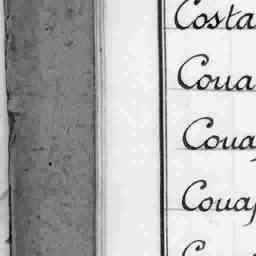 Costa
Coua
Coua
Coua